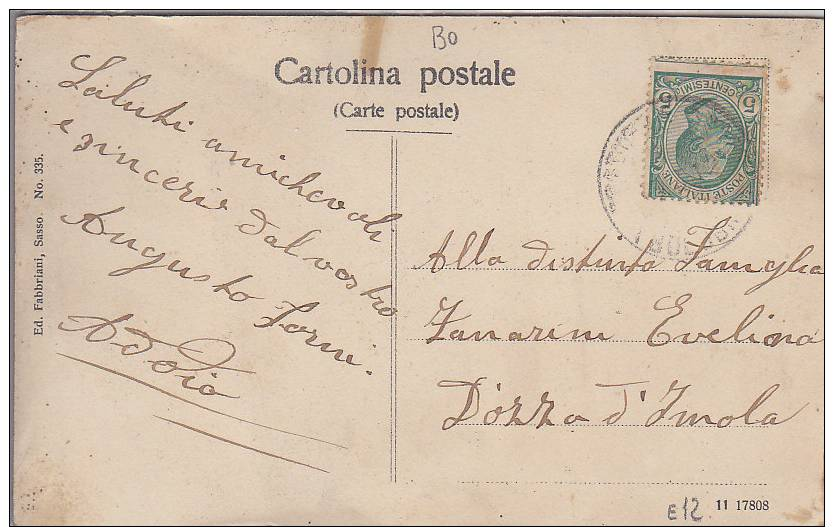 B0
Cartolina postale
(Carte postale)
Saluti amichevoli
e sincerio dal vostro
Augusto Forni.
Addio
Ed. Fabbriani, Sasso. No. 335.
5 CENTESIMI 5
POSTE ITALIANE
Alla distinta Famiglia
Zanarini Evelina
Dozza d'Imola
E12
11 17808